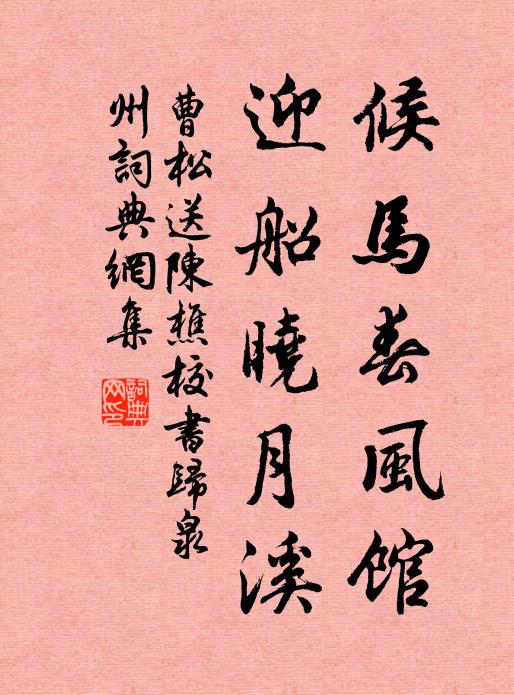 候馬春風館
迎船曉月溪
曹松送陳樵校書歸泉
州詞典網集
詞典
网印